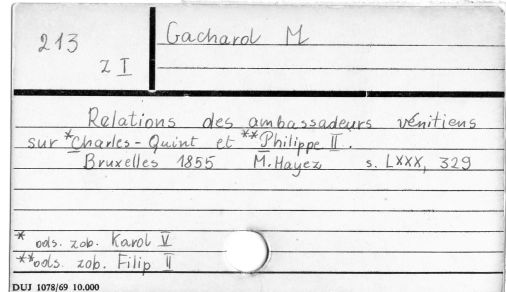 213
z I
Gachard M
Relations des ambassadeurs vénitiens
sur *Charles-Quint et **Philippe II.
Bruxelles 1855 M. Hayez s. LXXX, 329
* ods. zob. Karol V
** ods. zob. Filip II
DUJ 1078/69 10.000